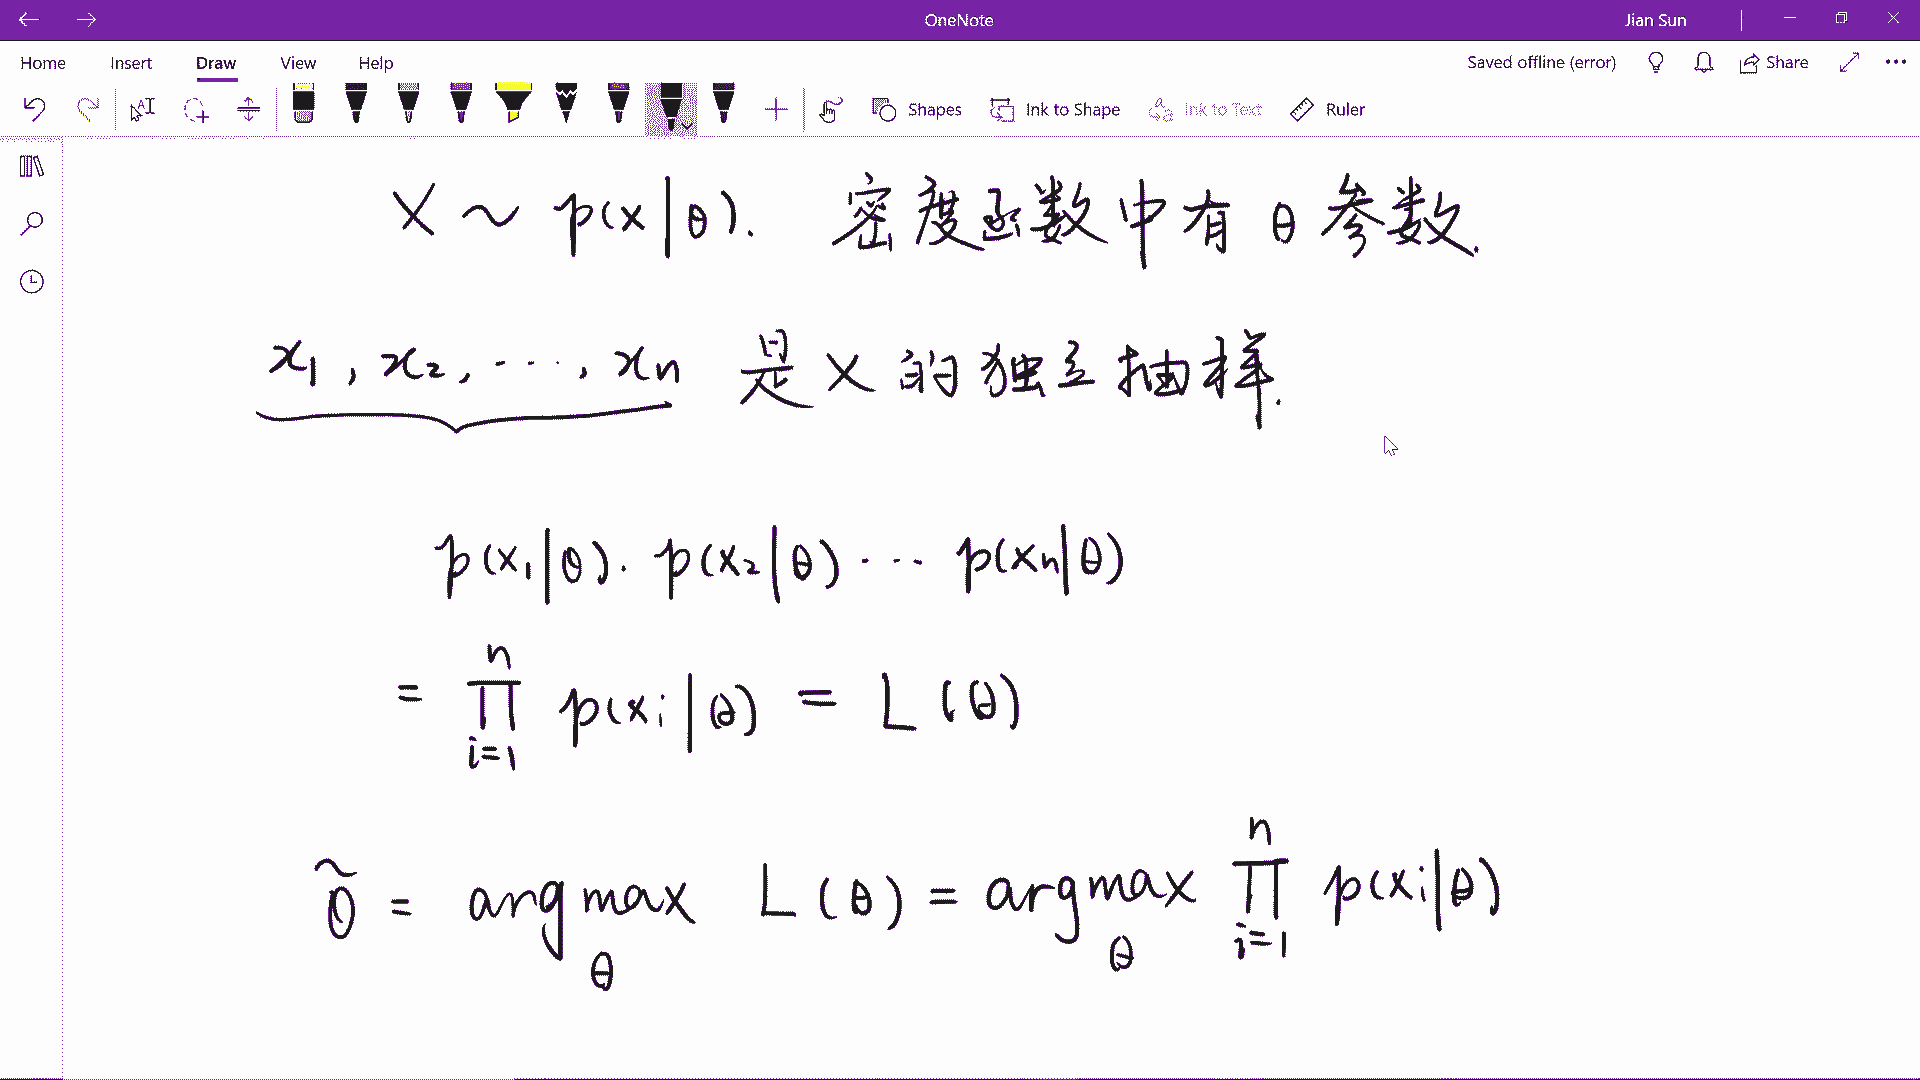 OneNote
Jian Sun
Home Insert Draw View Help
Saved offline (error) Share
Shapes Ink to Shape Ink to Text Ruler
X ~ p(x|θ). 密度函数中有 θ 参数.
x₁, x₂, ..., xₙ 是 X 的独立抽样.
p(x₁|θ). p(x₂|θ) ... p(xₙ|θ)
= ∏ᵢ₌₁ⁿ p(xᵢ|θ) = L(θ)
θ̃ = argmax_θ L(θ) = argmax_θ ∏ᵢ₌₁ⁿ p(xᵢ|θ)